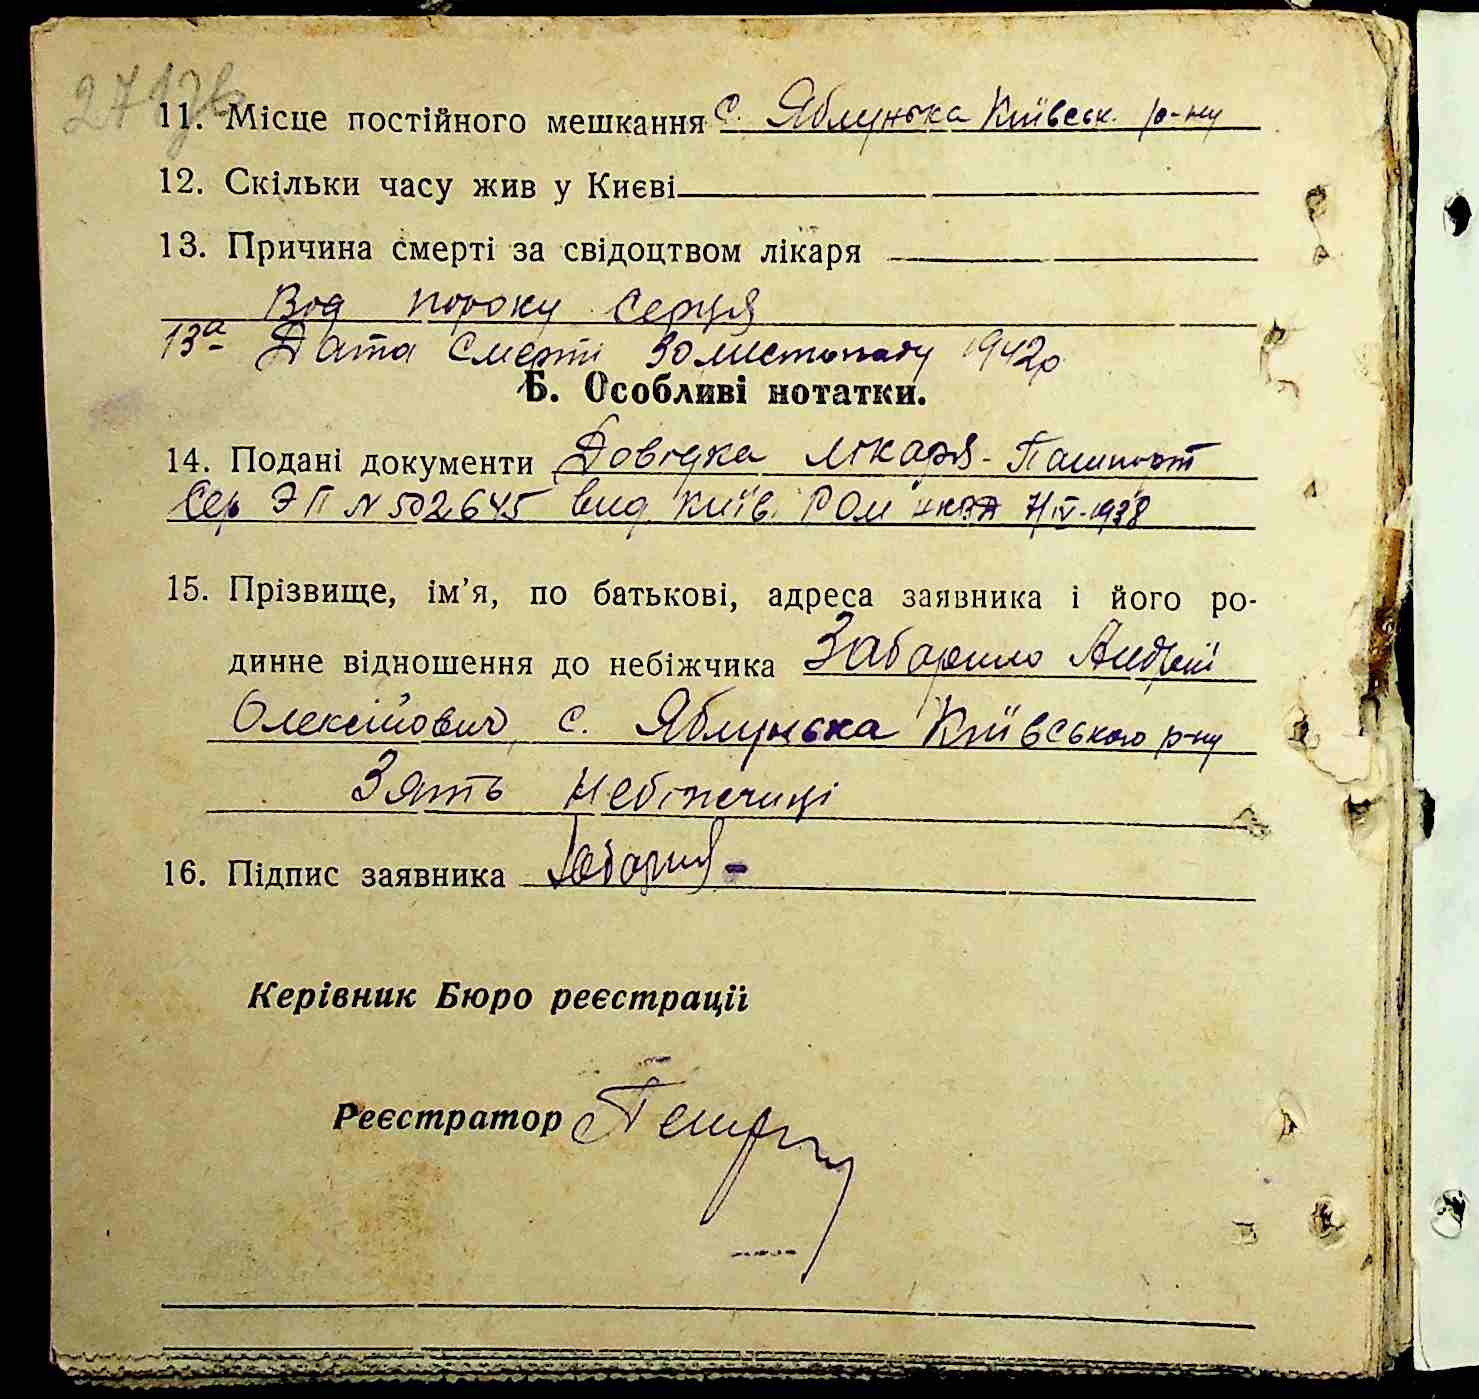 11. Місце постійного мешкання с. Яблунька Київськ. р-ну
12. Скільки часу жив у Києві
13. Причина смерті за свідоцтвом лікаря
Вод пороку серця
13а Дата смерті 30 листопаду 1942р
Б. Особливі нотатки.
14. Подані документи Довідка лікаря - Пашпорт
Сер ЭП № 502645 вид. Київ. РОМ НКВД 7/IV-1938
15. Прізвище, ім’я, по батькові, адреса заявника і його ро-
динне відношення до небіжчика Забарило Андрій
Олексійович, с. Яблунька Київського р-ну
Зять небіжчиці
16. Підпис заявника
Керівник Бюро реєстрації
Реєстратор